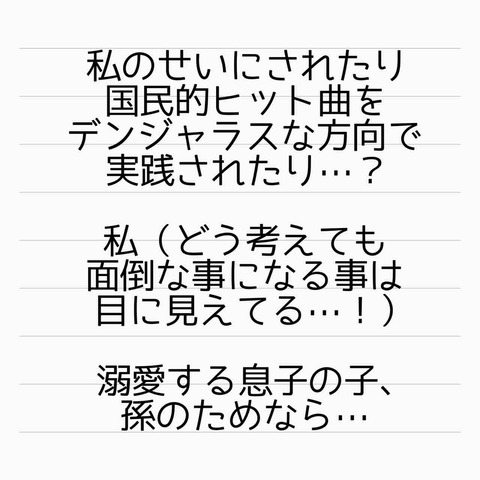 私のせいにされたり
国民的ヒット曲を
デンジャラスな方向で
実践されたり…？
私（どう考えても
面倒な事になる事は
目に見えてる…！）
溺愛する息子の子、
孫のためなら…